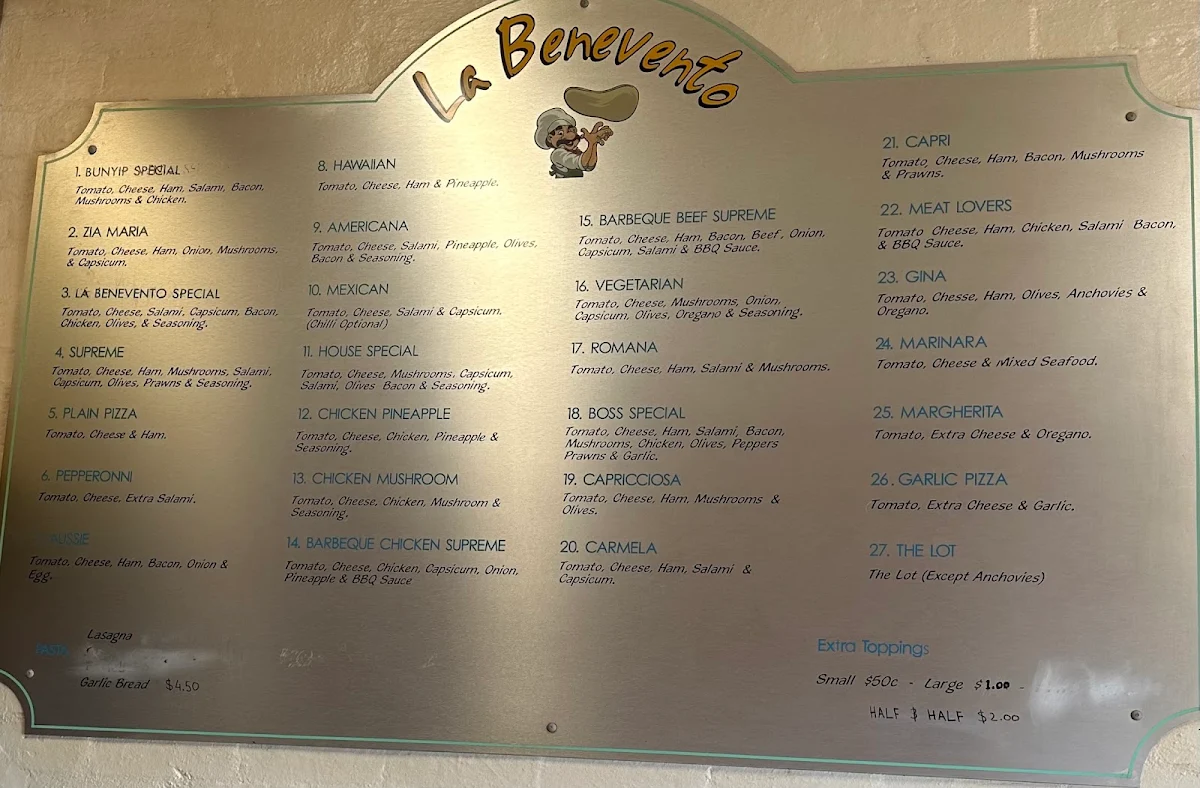 La Benevento
1. BUNYIP SPECIAL
Tomato, Cheese, Ham, Salami, Bacon,
Mushrooms & Chicken.
2. ZIA MARIA
Tomato, Cheese, Ham, Onion, Mushrooms,
& Capsicum.
3. LA BENEVENTO SPECIAL
Tomato, Cheese, Salami, Capsicum, Bacon,
Chicken, Olives, & Seasoning.
4, SUPREME
Tomato, Cheese, Ham, Mushrooms, Salami,
Capsicum, Olives, Prawns & Seasoning.
5. PLAIN PIZZA
Tomato, Cheese & Ham.
6. PEPPERONNI
Tomato, Cheese, Extra Salami.
USSIE
Tomato, Cheese, Ham, Bacon, Onion &
Egg.
8. HAWAIIAN
Tomato, Cheese, Ham & Pineapple.
9. AMERICANA
Tomato, Cheese, Salami, Pineapple, Olives,
Bacon & Seasoning.
10. MEXICAN
Tomato, Cheese, Salami & Capsicum.
(Chilli Optional)
11. HOUSE SPECIAL
Tomato, Cheese, Mushrooms, Capsicum,
Salami, Olives Bacon & Seasoning.
12. CHICKEN PINEAPPLE
Tomato, Cheese, Chicken, Pineapple &
Seasoning.
13. CHICKEN MUSHROOM
Tomato, Cheese, Chicken, Mushroom &
Seasoning.
14. BARBEQUE CHICKEN SUPREME
Tomato, Cheese, Chicken, Capsicum, Onion,
Pineapple & BBQ Sauce
15. BARBEQUE BEEF SUPREME
Tomato, Cheese, Ham, Bacon, Beef, Onion,
Capsicum, Salami & BBQ Sauce.
16. VEGETARIAN
Tomato, Cheese, Mushrooms, Onion,
Capsicum, Olives, Oregano & Seasoning.
17. ROMANA
Tomato, Cheese, Ham, Salami & Mushrooms.
18. BOSS SPECIAL
Tomato, Cheese, Ham, Salami, Bacon,
Mushrooms, Chicken, Olives, Peppers
Prawns & Garlic.
19. CAPRICCIOSA
Tomato, Cheese, Ham, Mushrooms &
Olives.
20. CARMELA
Tomato, Cheese, Ham, Salami &
Capsicum.
21. CAPRI
Tomato, Cheese, Ham, Bacon, Mushrooms
& Prawns.
22. MEAT LOVERS
Tomato Cheese, Ham, Chicken, Salami Bacon,
& BBQ Sauce.
23. GINA
Tomato, Chesse, Ham, Olives, Anchovies &
Oregano.
24. MARINARA
Tomato, Cheese & Mixed Seafood.
25. MARGHERITA
Tomato, Extra Cheese & Oregano.
26. GARLIC PIZZA
Tomato, Extra Cheese & Garlic.
27. THE LOT
The Lot (Except Anchovies)
Lasagna
PASTA
Garlic Bread $4.50
Extra Toppings
Small $50c - Large $1.00 -
HALF $ HALF $2.00